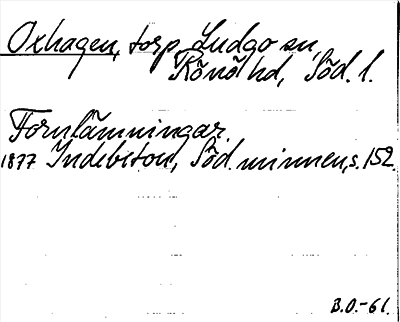 Oxhagen, torp, Ludgo sn,
Rönö hd, Söd. l.
Fornlämningar.
1877 Indebetou, Söd. minnen, s. 152.
B.O.-61.